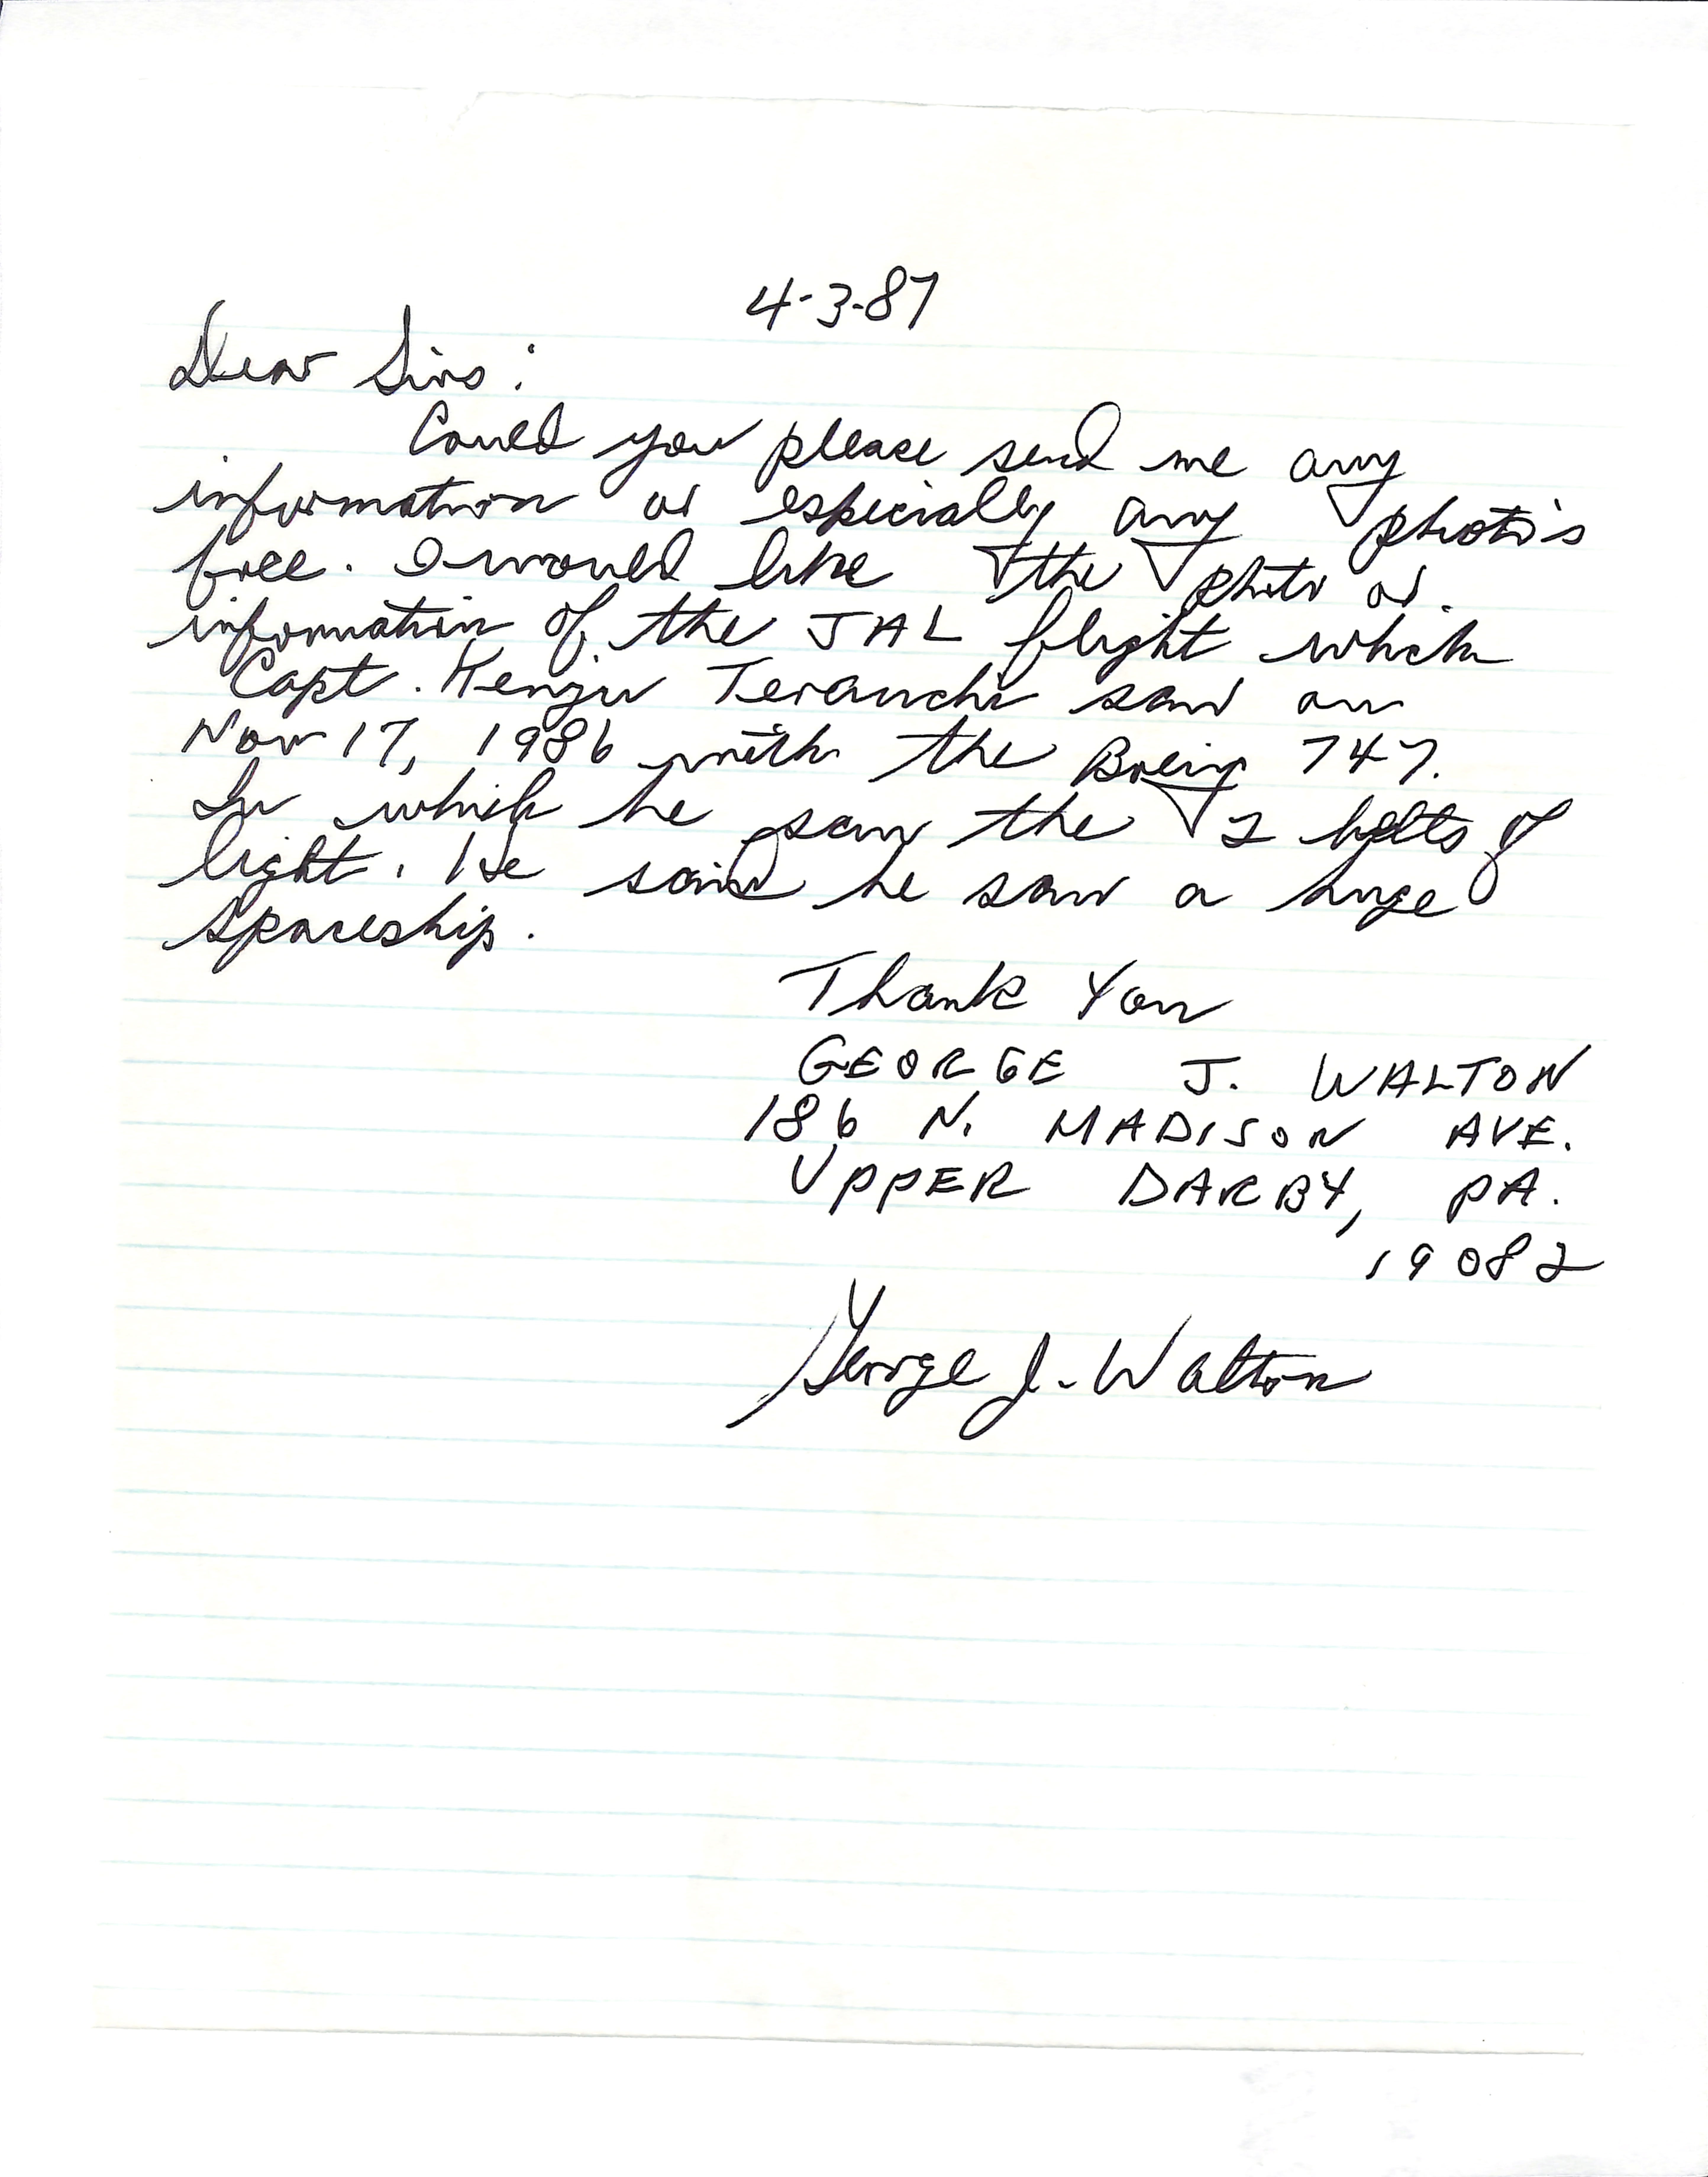 4-3-87
Dear Sirs:
Could you please send me any
information or especially any photo's
free. I would like the photo or
information of the JAL flight which
Capt. Kenju Terauchi saw on
Nov 17, 1986 with the Boeing 747.
In which he saw the 2 belts of
light. He said he saw a huge
spaceship.
Thank You
GEORGE J. WALTON
186 N. MADISON AVE.
UPPER DARBY, PA.
19082
George J. Walton